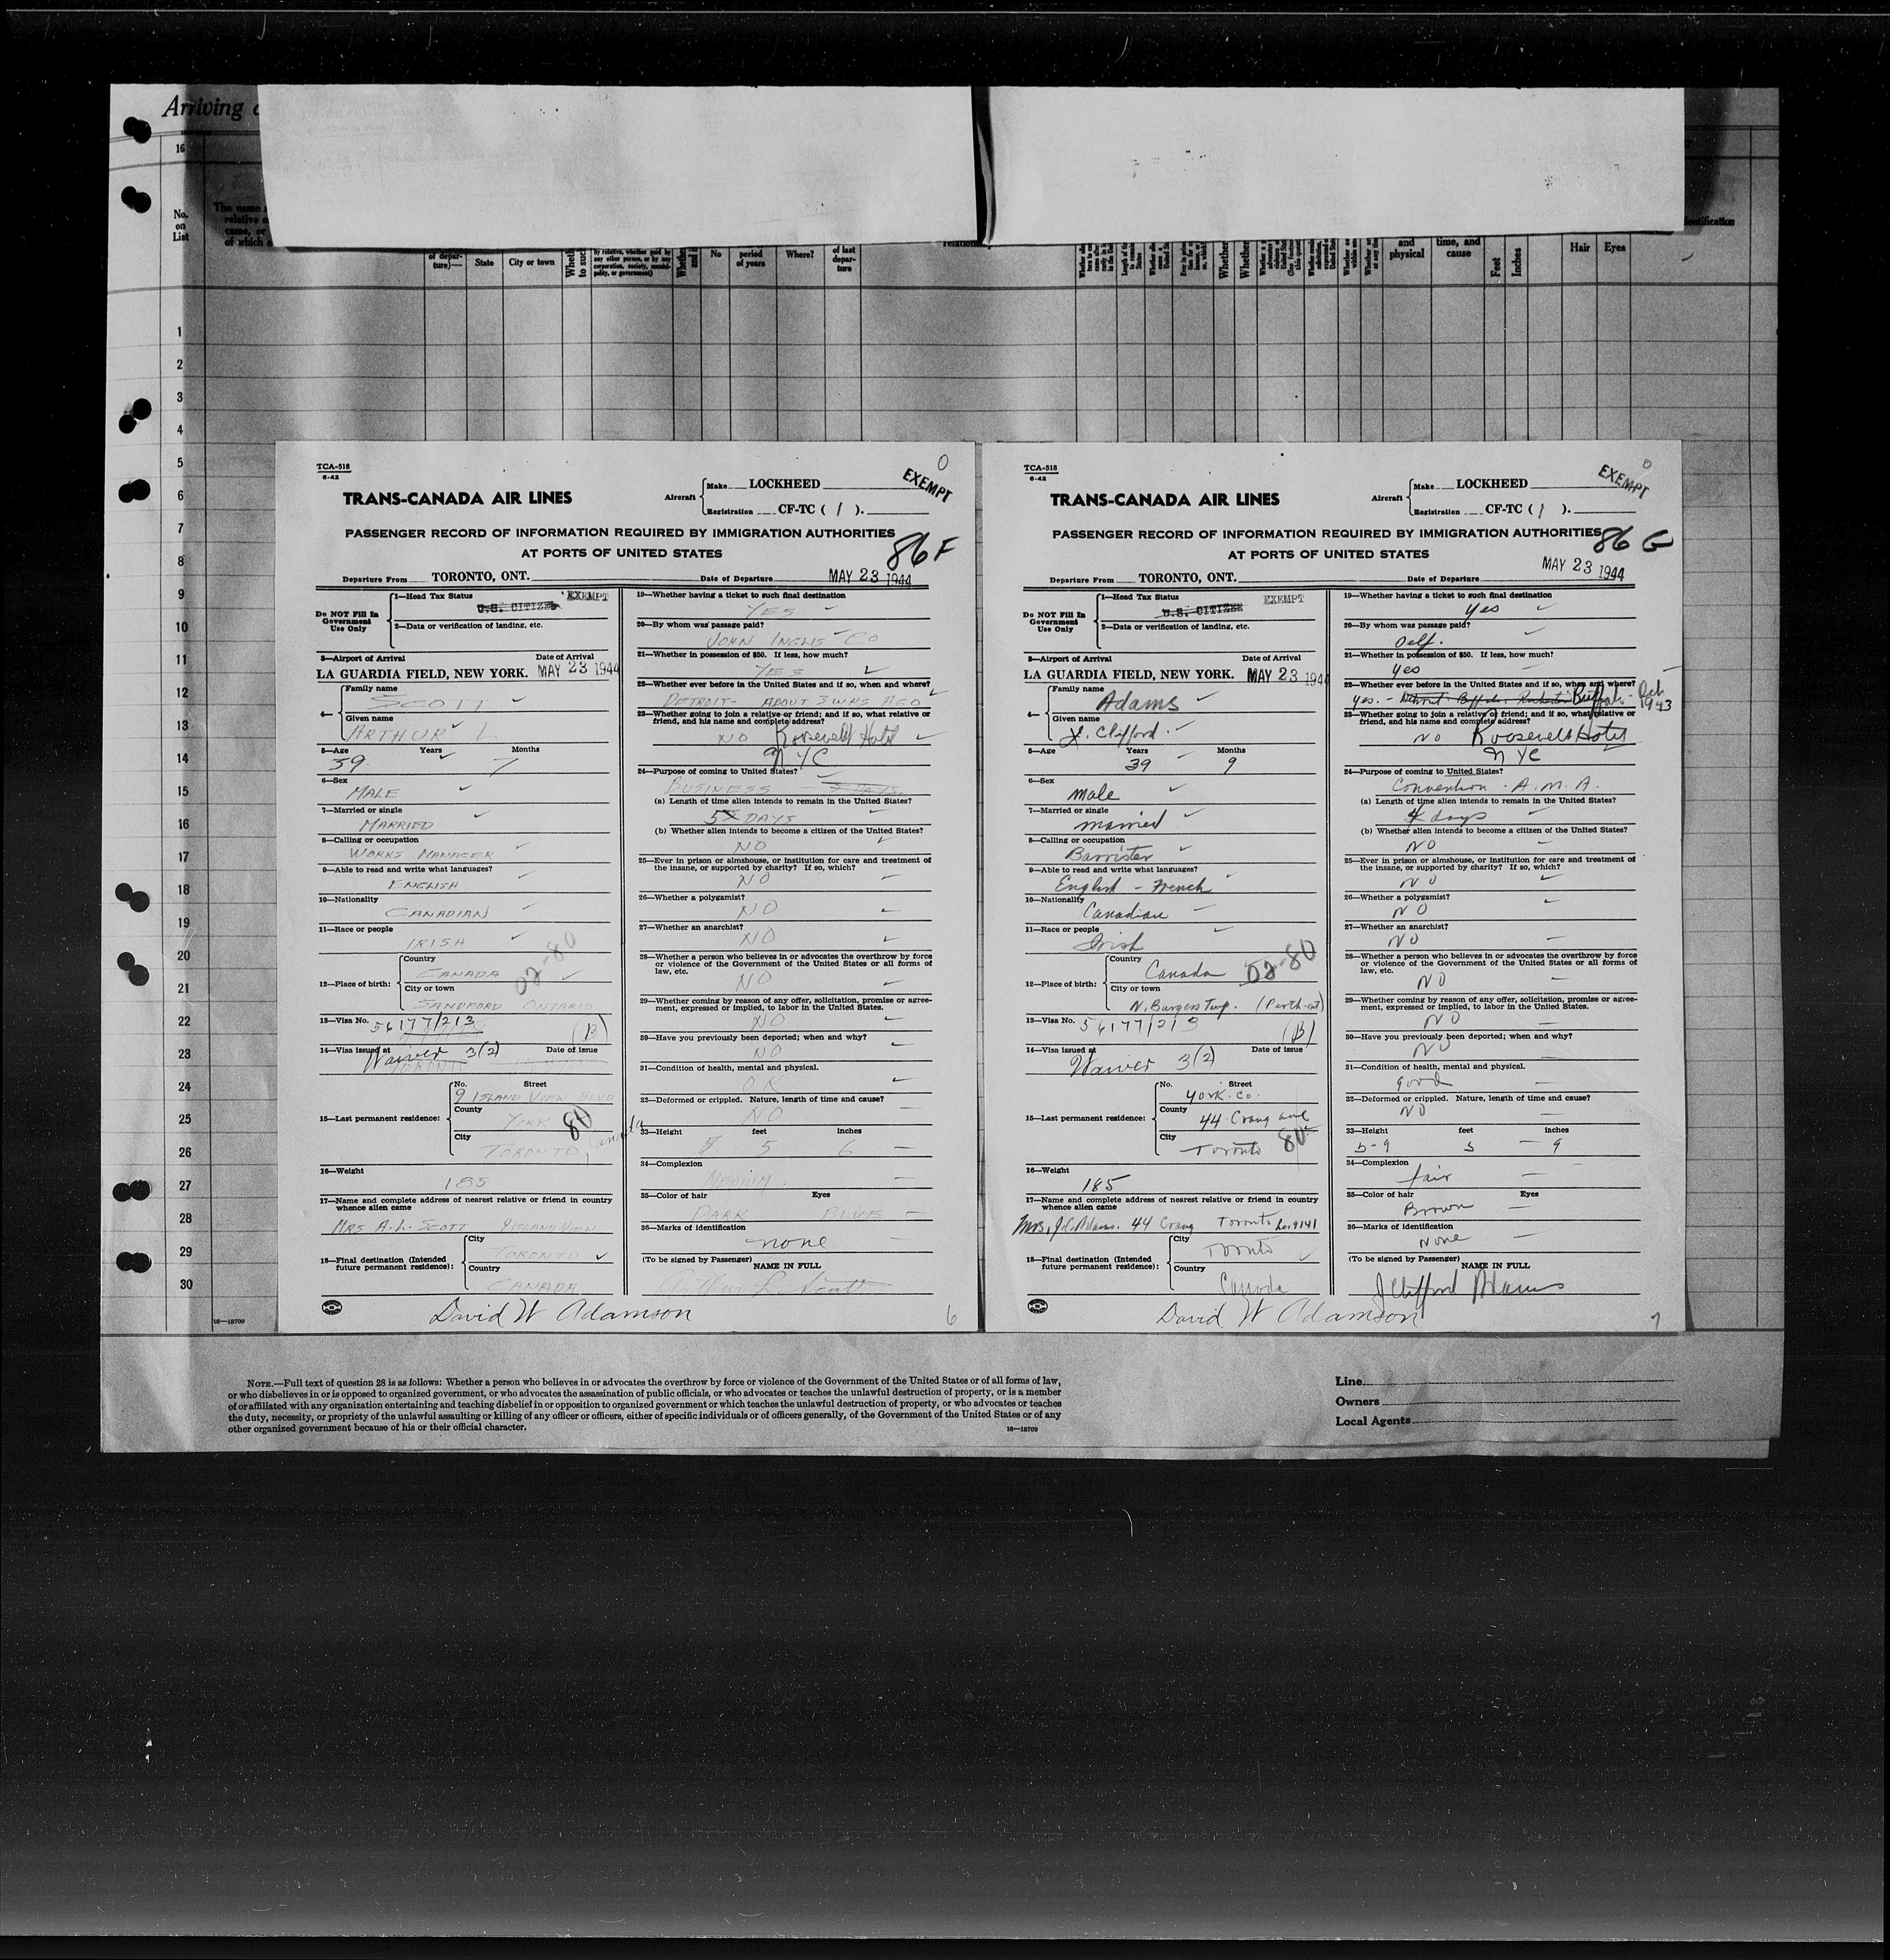 Arriving
16
No.
on
List
The name
relative o
came, or
of which
of depar-
ture)—
State
City or town
Whether
to such
by relative, whether paid by
any other person, or by any
corporation, society, munici-
pality, or government)
No
period
of years
Where?
of last
depar-
ture
Whether
Whether
and
physical
time, and
cause
Feet
Inches
Hair
Eyes
1
2
3
4
5
6
7
8
9
10
11
12
13
14
15
16
17
18
19
20
21
22
23
24
25
26
27
28
29
30
16—18709
TCA-518
6-42
TRANS-CANADA AIR LINES
Aircraft
Make LOCKHEED
Registration CF-TC ( 1 ).
EXEMPT
0
PASSENGER RECORD OF INFORMATION REQUIRED BY IMMIGRATION AUTHORITIES
AT PORTS OF UNITED STATES
86 F
Departure From TORONTO, ONT. Date of Departure MAY 23 1944
Do NOT Fill In
Government
Use Only
1—Head Tax Status
U.S. CITIZEN EXEMPT
2—Data or verification of landing, etc.
3—Airport of Arrival Date of Arrival
LA GUARDIA FIELD, NEW YORK. MAY 23 1944
4—
Family name
SCOTT
Given name
ARTHUR L
5—Age Years Months
39 7
6—Sex
MALE
7—Married or single
MARRIED
8—Calling or occupation
WORKS MANAGER
9—Able to read and write what languages?
ENGLISH
10—Nationality
CANADIAN
11—Race or people
IRISH
12—Place of birth:
Country
CANADA
02-80
City or town
SANDFORD ONTARIO
13—Visa No. 56177/213 (B)
14—Visa issued at Date of issue
Waiver 3(2)
15—Last permanent residence:
No. Street
9 ISLAND VIEW BLVD
County
YORK 80
City
TORONTO, Canada
16—Weight
185
17—Name and complete address of nearest relative or friend in country
whence alien came
MRS A.L. SCOTT 9 ISLAND VIEW
18—Final destination (Intended
future permanent residence):
City
TORONTO
Country
CANADA
David W Adamson
19—Whether having a ticket to such final destination
YES
20—By whom was passage paid?
JOHN INGLIS CO
21—Whether in possession of $50. If less, how much?
YES
22—Whether ever before in the United States and if so, when and where?
DETROIT- ABOUT 3 WKS AGO
23—Whether going to join a relative or friend; and if so, what relative or
friend, and his name and complete address?
NO Roosevelt Hotel
NYC
24—Purpose of coming to United States?
BUSINESS
(a) Length of time alien intends to remain in the United States?
5 DAYS
(b) Whether alien intends to become a citizen of the United States?
NO
25—Ever in prison or almshouse, or institution for care and treatment of
the insane, or supported by charity? If so, which?
NO
26—Whether a polygamist?
NO
27—Whether an anarchist?
NO
28—Whether a person who believes in or advocates the overthrow by force
or violence of the Government of the United States or all forms of
law, etc.
NO
29—Whether coming by reason of any offer, solicitation, promise or agree-
ment, expressed or implied, to labor in the United States.
NO
30—Have you previously been deported; when and why?
NO
31—Condition of health, mental and physical.
OK
32—Deformed or crippled. Nature, length of time and cause?
NO
33—Height feet inches
5 6
34—Complexion
MEDIUM
35—Color of hair Eyes
DARK BLUE
36—Marks of identification
none
(To be signed by Passenger)
NAME IN FULL
Arthur L. Scott
6
TCA-518
6-42
TRANS-CANADA AIR LINES
Aircraft
Make LOCKHEED
Registration CF-TC ( 1 ).
EXEMPT
0
PASSENGER RECORD OF INFORMATION REQUIRED BY IMMIGRATION AUTHORITIES
AT PORTS OF UNITED STATES
86 G
Departure From TORONTO, ONT. Date of Departure MAY 23 1944
Do NOT Fill In
Government
Use Only
1—Head Tax Status
U.S. CITIZEN EXEMPT
2—Data or verification of landing, etc.
3—Airport of Arrival Date of Arrival
LA GUARDIA FIELD, NEW YORK. MAY 23 1944
4—
Family name
Adams
Given name
J. Clifford.
5—Age Years Months
39 9
6—Sex
male
7—Married or single
married
8—Calling or occupation
Barrister
9—Able to read and write what languages?
English - French
10—Nationality
Canadian
11—Race or people
Irish
12—Place of birth:
Country
Canada
02-80
City or town
N. Burgess Twp. (Perth ont)
13—Visa No. 56177/213 (B)
14—Visa issued at Date of issue
Waiver 3(2)
15—Last permanent residence:
No. Street
York. Co.
County
44 Craig ave
City
Toronto 80
16—Weight
185
17—Name and complete address of nearest relative or friend in country
whence alien came
Mrs. J.C. Adams. 44 Craig Toronto Lo.9141
18—Final destination (Intended
future permanent residence):
City
Toronto
Country
Canada
David W Adamson
19—Whether having a ticket to such final destination
yes
20—By whom was passage paid?
Self.
21—Whether in possession of $50. If less, how much?
yes
22—Whether ever before in the United States and if so, when and where?
yes. - Detroit - Buffalo - Rochester Buffalo - Feb 1943
23—Whether going to join a relative or friend; and if so, what relative or
friend, and his name and complete address?
NO Roosevelt Hotel
NYC
24—Purpose of coming to United States?
Convention. A.M.A.
(a) Length of time alien intends to remain in the United States?
4 days
(b) Whether alien intends to become a citizen of the United States?
NO
25—Ever in prison or almshouse, or institution for care and treatment of
the insane, or supported by charity? If so, which?
NO
26—Whether a polygamist?
NO
27—Whether an anarchist?
NO
28—Whether a person who believes in or advocates the overthrow by force
or violence of the Government of the United States or all forms of
law, etc.
NO
29—Whether coming by reason of any offer, solicitation, promise or agree-
ment, expressed or implied, to labor in the United States.
NO
30—Have you previously been deported; when and why?
NO
31—Condition of health, mental and physical.
good
32—Deformed or crippled. Nature, length of time and cause?
NO
33—Height feet inches
5-9 5 9
34—Complexion
fair
35—Color of hair Eyes
Brown
36—Marks of identification
None
(To be signed by Passenger)
NAME IN FULL
J Clifford Adams
7
NOTE.—Full text of question 28 is as follows: Whether a person who believes in or advocates the overthrow by force or violence of the Government of the United States or of all forms of law,
or who disbelieves in or is opposed to organized government, or who advocates the assassination of public officials, or who advocates or teaches the unlawful destruction of property, or is a member
of or affiliated with any organization entertaining and teaching disbelief in or opposition to organized government or which teaches the unlawful destruction of property, or who advocates or teaches
the duty, necessity, or propriety of the unlawful assaulting or killing of any officer or officers, either of specific individuals or of officers generally, of the Government of the United States or of any
other organized government because of his or their official character.
16—18709
Line
Owners
Local Agents